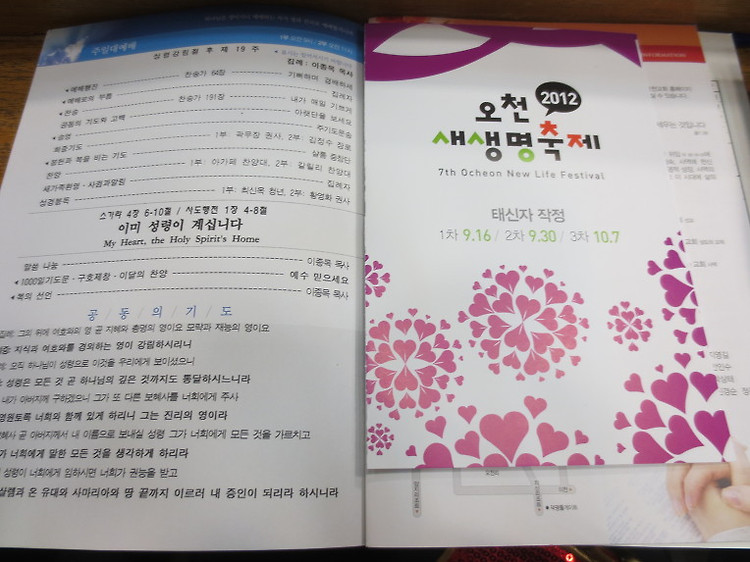 주일대예배
성령강림절 후 제 19 주
집례 : 이종목 목사
◂예배행진 기뻐하며 경배하세
찬송가 64장
◂예배로의 부름 집례자
◂찬송 찬송가 191장 내가 매일 기쁘게
공동의 기도와 고백 아랫단을 보세요
◂송영 주기도문송
회중기도 1부: 곽무장 권사, 2부: 김정수 장로
◂응원과 복을 비는 기도 샬롬 중창단
찬양 1부: 아가페 찬양대, 2부: 갈릴리 찬양대
새가족환영 · 사귐과알림 집례자
성경봉독 1부: 최신옥 청년, 2부: 황영화 권사
스가랴 4장 6-10절 / 사도행전 1장 4-8절
이미 성령이 계십니다
My Heart, the Holy Spirit's Home
말씀 나눔 이종목 목사
◂1000일기도문 · 구호제창 · 이달의 찬양 예수 믿으세요
◂복의 선언 이종목 목사
공 / 동 / 의 / 기 / 도
집례: 그의 위에 여호와의 영 곧 지혜와 총명의 영이요 모략과 재능의 영이요
지식과 여호와를 경외하는 영이 강림하시리니
오직 하나님이 성령으로 이것을 우리에게 보이셨으니
성령은 모든 것 곧 하나님의 깊은 것까지도 통달하시느니라
내가 아버지께 구하겠으니 그가 또 다른 보혜사를 너희에게 주사
영원토록 너희와 함께 있게 하리니 그는 진리의 영이라
보혜사 곧 아버지께서 내 이름으로 보내실 성령 그가 너희에게 모든 것을 가르치고
내가 너희에게 말한 모든 것을 생각하게 하리라
성령이 너희에게 임하시면 너희가 권능을 받고
예루살렘과 온 유대와 사마리아와 땅 끝까지 이르러 내 증인이 되리라 하시니라
오천 2012
새생명축제
7th Ocheon New Life Festival
태신자 작정
1차 9.16 / 2차 9.30 / 3차 10.7
INFORMATION